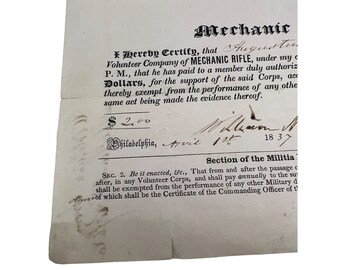 Mechanic
I Hereby Certify, that Augustus
Volunteer Company of MECHANIC RIFLE, under my c
P. M., that he has paid to a member duly authoriz
Dollars, for the support of the said Corps, acc
thereby exempt from the performance of any othe
same act being made the evidence thereof.
$ 2.00
William
Philadelphia, April 1st 1837
Section of the Militia
SEC. 2. Be it enacted, &c., That from and after the passage o
after, in any Volunteer Corps, and shall pay annually to the su
shall be exempted from the performance of any other Military d
of which shall be the Certificate of the Commanding Officer of t